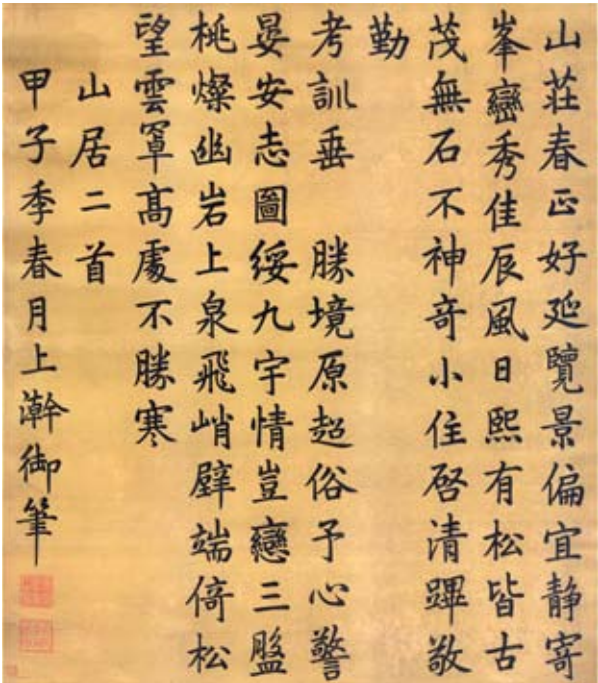 山莊春正好延覽景偏宜靜寄
峯巒秀佳辰風日熙有松皆古
茂無石不神奇小住启清蹕敬
勤
考訓垂 勝境原超俗予心警
晏安志圖綏九宇情豈戀三盤
桃燦幽岩上泉飛峭壁端倚松
望雲罩髙處不勝寒
山居二首
甲子季春月上澣御筆